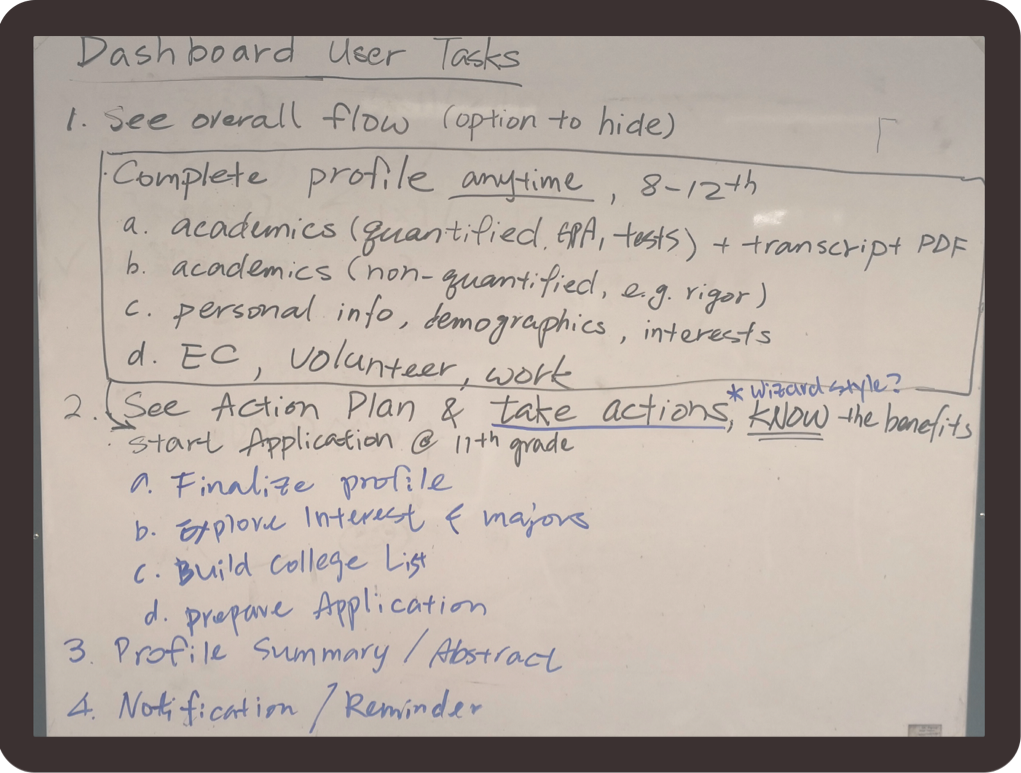 Dashboard User Tasks
1. See overall flow (option to hide)
Complete profile anytime, 8-12th
a. academics (quantified. GPA, tests) + transcript PDF
b. academics (non-quantified, e.g. rigor)
c. personal info, demographics, interests
d. EC, volunteer, work
* wizard style?
2. See Action Plan & take actions, KNOW the benefits
start Application @ 11th grade
a. Finalize profile
b. Explore Interest & majors
c. Build College List
d. prepare Application
3. Profile Summary / Abstract
4. Notification / Reminder